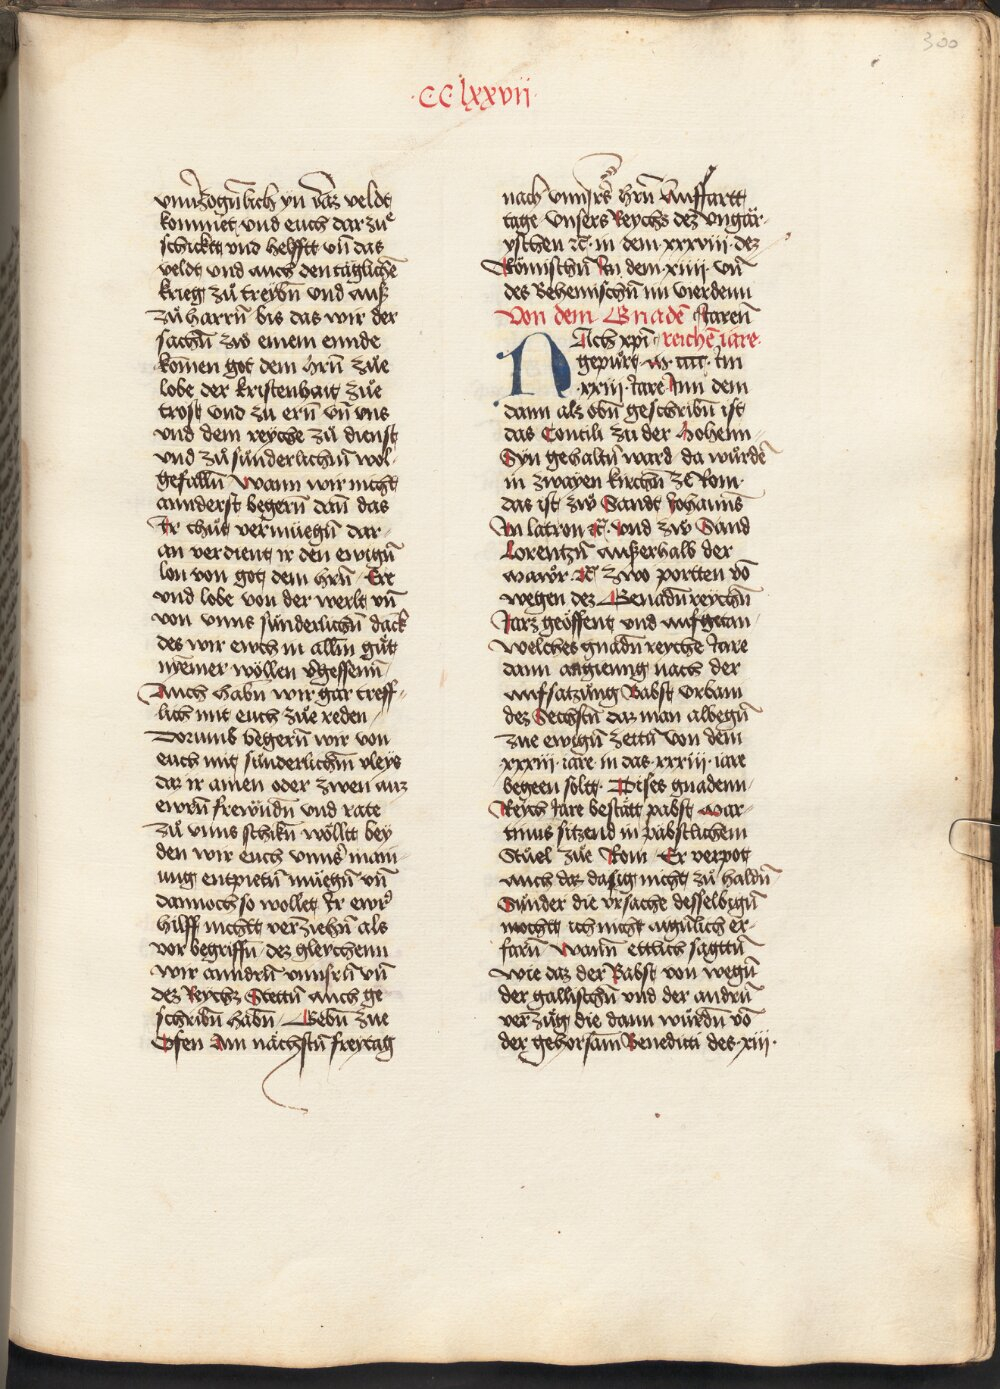 300
·CClxxvii·
vnuerzogenlich yn das veldt
kommet vnd euch dar zue
schicktt vnd helfftt vn̄ das
veldt vnd auch den täglichē
krieg zů treybn̄ vnd auß
zů harrn̄ bis das wir der
sachn̄ zwo einem ennde
komen got dem hrn̄ zůe
lobe der kristenhait zůe
trost vnd zu ern̄ vn̄ vns
vnd dem reyche zů dienst
vnd zů sünderlichm̄ wol-
gefalln̄ wann wir nicht
annderst begern̄ dan̄ das
Ir thůt vermüegn̄ dar-
an verdient ir den ewign̄
lon von got dem hrn̄ Ere
vnd lobe von der werlt vn̄
von vnns sünderlichn̄ dack
des wir euch in alln̄ gůt
nyemer wöllen v̄gessenn
Auch habn̄ wir gar treff-
lich mit euch zůe reden
Dorumb begern̄ wir von
euch mit sünderlichm̄ vleys
daz ir ainen oder zwen auz
ewrn̄ frewndn̄ vnd rate
zů vnns schikn̄ wölltt bey
den wir euch vnns̄ main-
ung entpietn̄ müegn̄ vn̄
dannoch so wollet Ir ewr̄
hilff nichtt verziehn̄ als
vor begriffn̄ dez gleychenn
wir anndrn̄ vnnsrn̄ vn̄
dez Reychz Stettn̄ auch ge
schribn̄ habn̄ Gebn̄ zůe
Ofen Am nächstn̄ freytag
nach vnnsrs hrn̄ Auffartt
tage vnsers Reychs dez vngär-
yschen ꝛc̄ in dem xxxviii dez
Römischn̄ In dem xiiii vn̄
des Behemischn̄ im vierdenn
Von dem Gnadē Jaren̄
NAch xp̄i reichē iare
gepürt M cccc Im
xxiii Jare Inn dem
dann als obn̄ geschribn̄ ist
das Concili zu der hohenn
Syn gehaltn̄ ward da würdē
in zwayen kirchn̄ ze Rom
das ist zw Sandt Johanns
In latron ꝛc̄ vnd zw Sand
Lorentzn̄ außerhalb der
mawr ꝛc̄ zwo portten vō
wegen dez Genadn̄reychn̄
Jarz geöffent vnd aufgetan
welches gnadn̄ reyche Jare
dann angieng nach der
aufsatzung Babst Vrbani
dez Sechstn̄ daz man albegn̄
zue ewign̄ zeitn̄ von dem
xxxiii iare in das xxxiii iare
begeen soltt Dises gnadenn
Reych Jare bestätt pabst Mar-
tinus sitzend in päbstlichem
Stůel zůe Rom Er verpot
auch daz dasig nicht zů haldn̄
Sunder die vrsache desselbign̄
mochtt ich nicht aigñlich er-
farn̄ wann ettlich sagttn̄
wie daz der Babst von wegn̄
der gallischn̄ vnd der andrn̄
verzüg die dann würdn̄ vō
der gehorsam̄ Benedicti des xiii